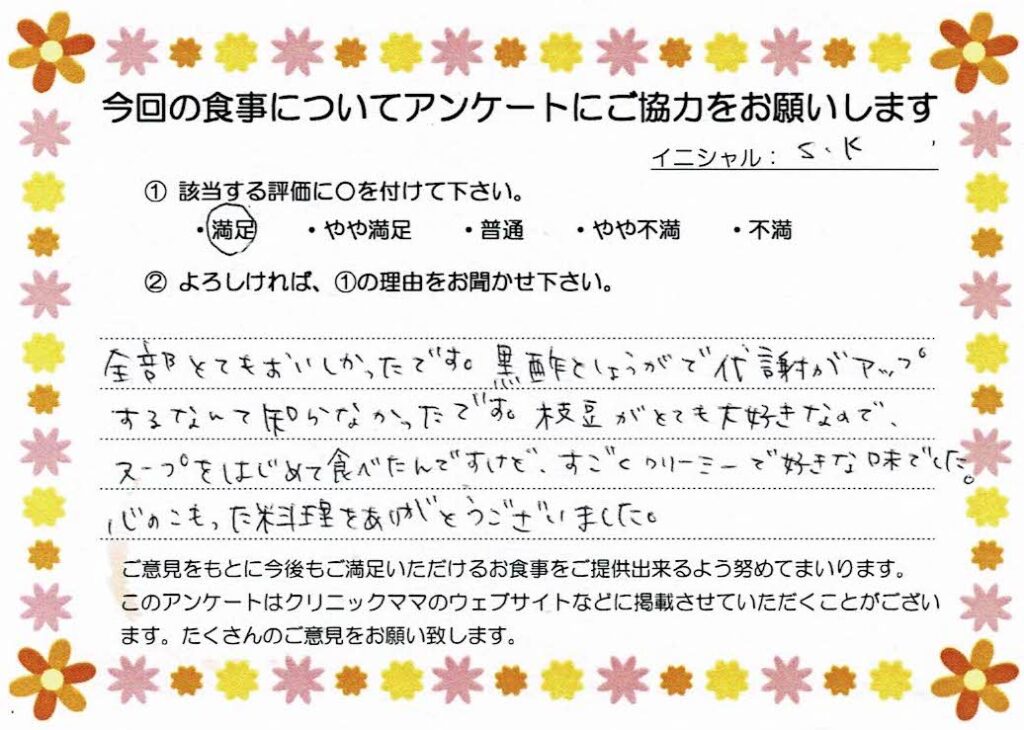 今回の食事についてアンケートにご協力をお願いします
イニシャル： S.K
① 該当する評価に○を付けて下さい。
・満足 ・やや満足 ・普通 ・やや不満 ・不満
② よろしければ、①の理由をお聞かせ下さい。
全部とてもおいしかったです。黒酢としょうがで代謝がアップ
するなんて知らなかったです。枝豆がとても大好きなので、
スープをはじめて食べたんですけど、すごくクリーミーで好きな味でした。
心のこもった料理をありがとうございました。
ご意見をもとに今後もご満足いただけるお食事をご提供出来るよう努めてまいります。
このアンケートはクリニックママのウェブサイトなどに掲載させていただくことがござい
ます。たくさんのご意見をお願い致します。